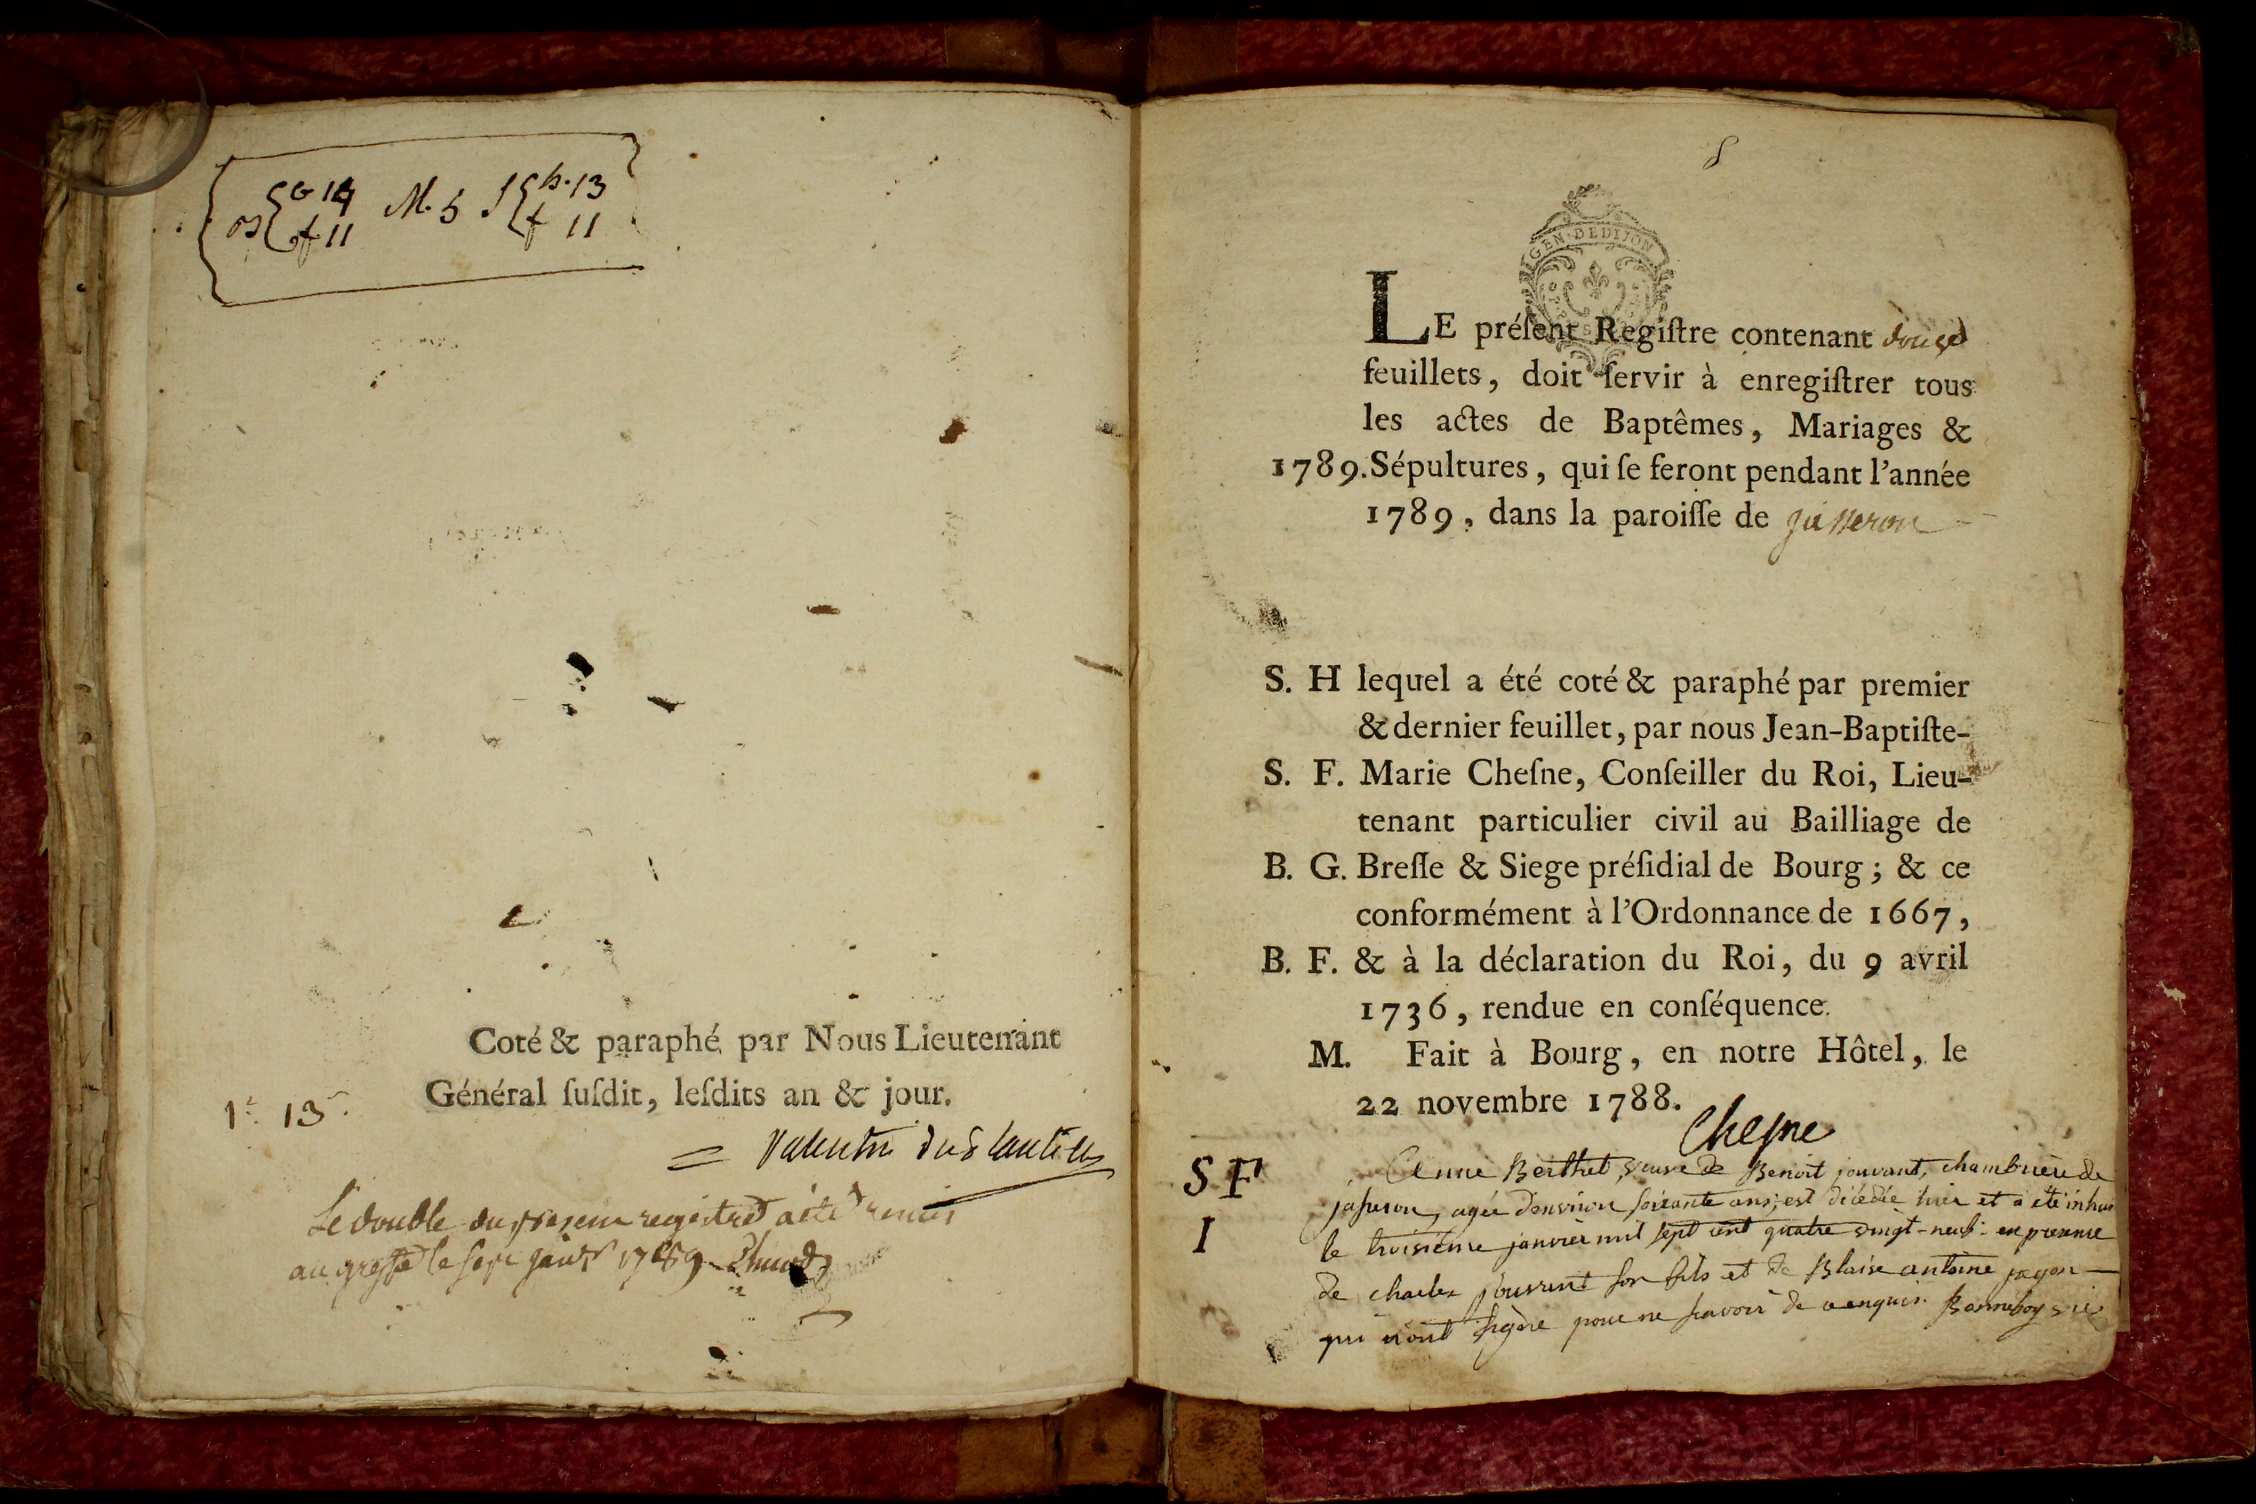 B { G 14 M. 5 S { h. 13
f 11 f 11
Coté & paraphé par Nous Lieutenant
Général ſuſdit, leſdits an & jour.
1. 13
Le double du present registre a été remis
au greffe le sept janvr 1789
8
GEN. DE DIJON
LE préſent Regiſtre contenant douze
feuillets, doit ſervir à enregiſtrer tous
les actes de Baptêmes, Mariages &
1789. Sépultures, qui ſe feront pendant l'année
1789, dans la paroiſſe de jasseron
S. H lequel a été coté & paraphé par premier
& dernier feuillet, par nous Jean-Baptiſte-
S. F. Marie Cheſne, Conſeiller du Roi, Lieu-
tenant particulier civil au Bailliage de
B. G. Breſſe & Siege préſidial de Bourg ; & ce
conformément à l'Ordonnance de 1667,
B. F. & à la déclaration du Roi, du 9 avril
1736, rendue en conſéquence.
M. Fait à Bourg, en notre Hôtel, le
22 novembre 1788.
Chesne
S F Anne Berthet, veuve de Benoit jouvant, chambriere de
jasseron, agée d'environ soixante ans, est décédée hier et a été inhu
I le troisième janvier mil sept cent quatre vingt-neuf en presence
de charles jouvent son fils et de Blaise antoine
qui n'ont signé pour ne savoir de ce enquis. vic